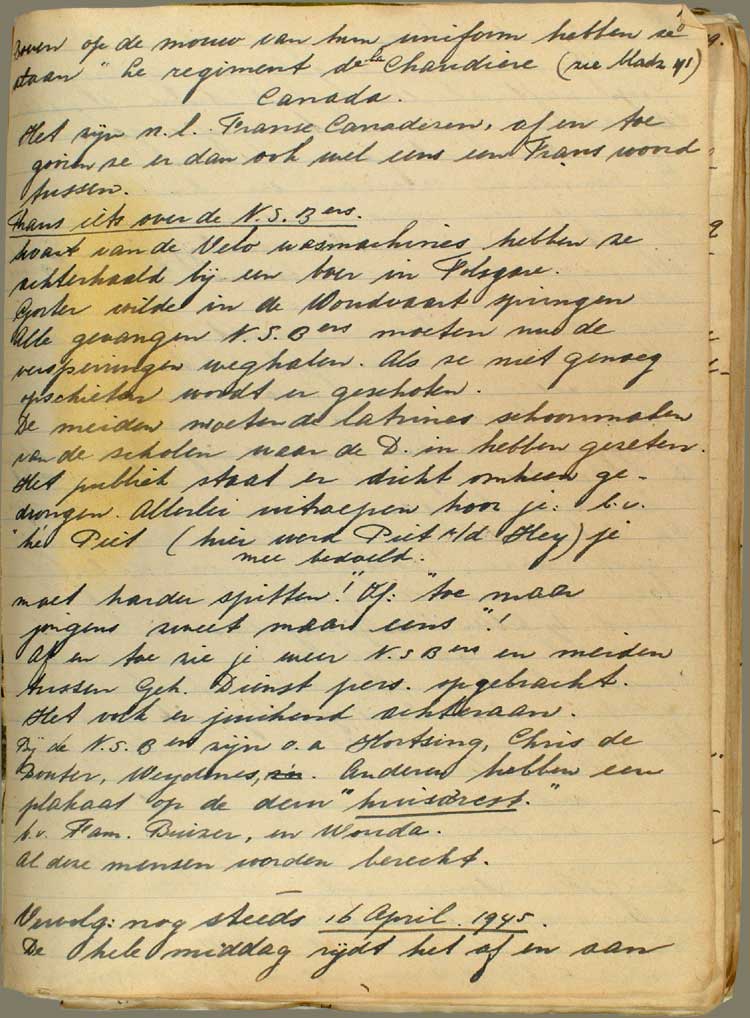 Boven op de mouw van hun uniform hebben ze
staan "Le regiment de la Chaudiere (zie bladz 41)
Canada.
Het zijn n.l. Franse Canadezen, af en toe
gooien ze er dan ook wel eens een Frans woord
tussen.
Thans iets over de N.S.Bers.
kaart van de Velo wasmachines hebben ze
achterhaald bij een boer in Folsgare.
Gorter wilde in de Woudvaart springen
Alle gevangen N.S.Bers moeten nu de
versperringen weghalen. Als ze niet genoeg
opschieten wordt er geschoten.
De meiden moeten de latrines schoonmaken
van de scholen waar de D. in hebben gezeten.
Het publiek staat er dicht omheen ge-
drongen. Allerlei uitroepen hoor je: b.v.
"hé Piet (hier werd Piet v/d Hey) je
mee bedoeld.
moet harder spitten!" Of: "toe maar
jongens zweet maar eens"!
Af en toe zie je weer N.S Bers en meiden
tussen Geh. Dienst pers. opgebracht.
Het volk er juichend achteraan.
Bij de N.S.Bers zijn o.a Hortsing, Chris de
Anderen hebben een
plakaat op de deur "huisarrest."
b.v. Fam. Buizer, en Wouda.
Al deze mensen worden berecht.
Vervolg: nog steeds 16 April 1945.
De hele middag rijdt het af en aan